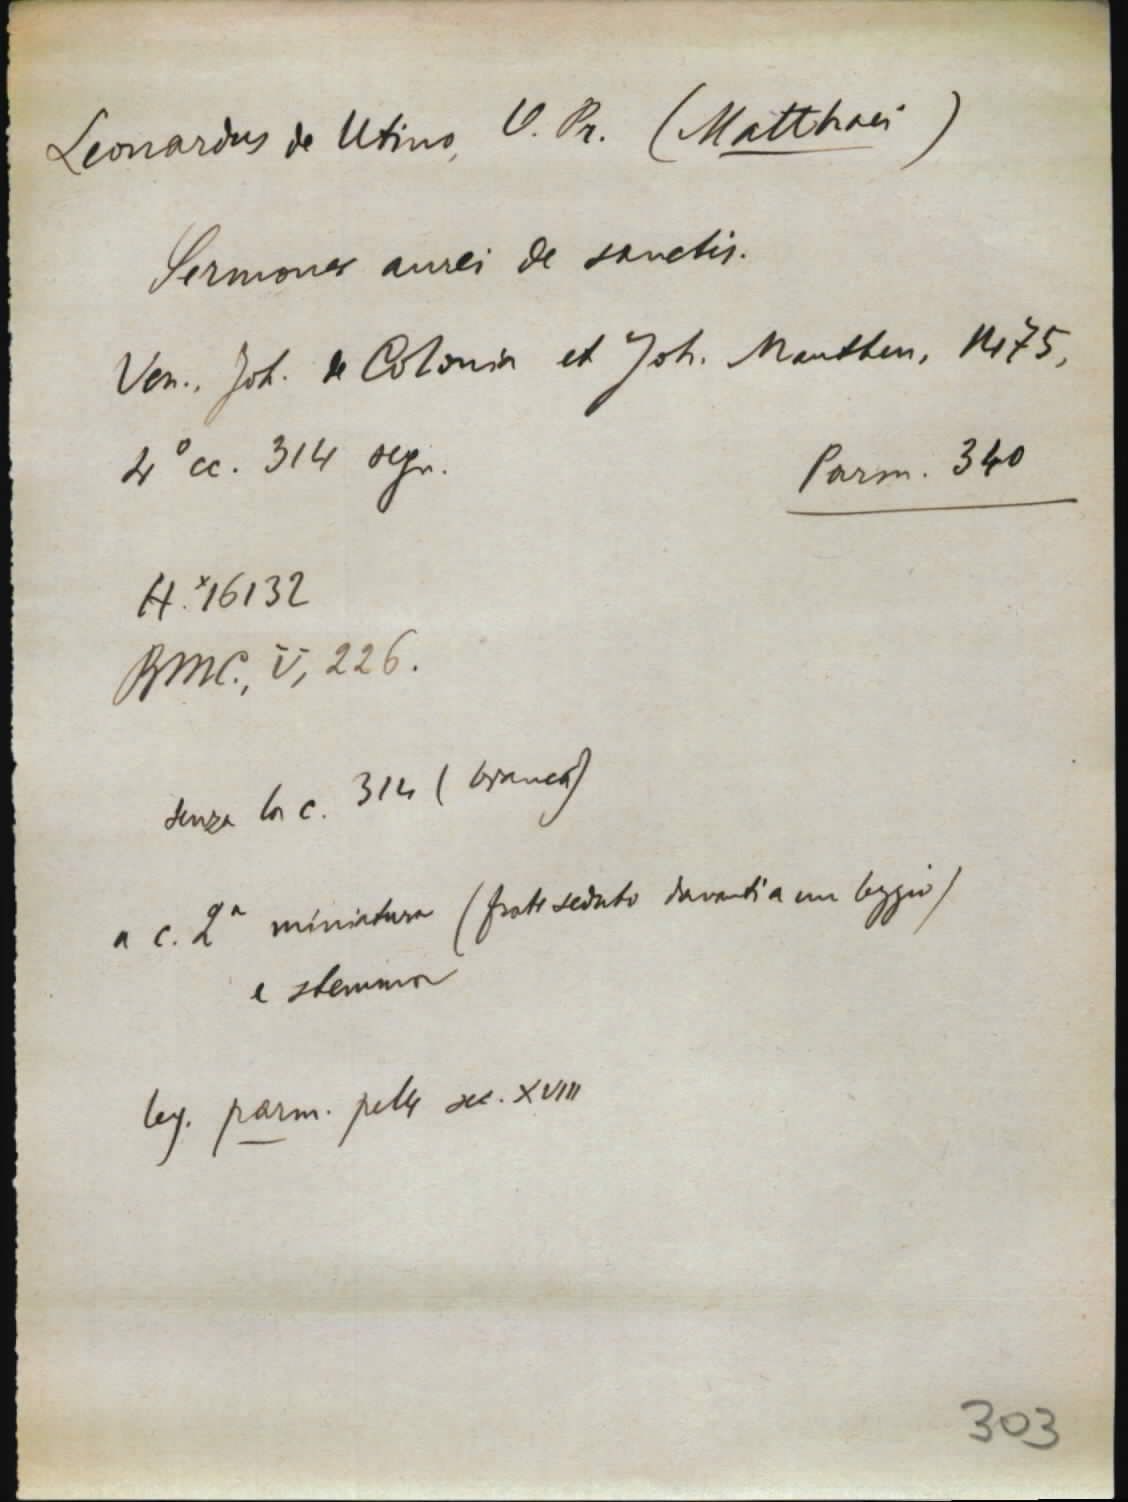 Leonardus de Utino, O. Pr. (Matthaei)
Sermones aurei de sanctis.
Ven., Joh. de Colonia et Joh. Manthen, 1475,
4° cc. 314 segn.
Parm. 340
H.ˣ16132
BMC., V, 226.
senza la c. 314 (bianca)
a c. 2ª miniatura (frate seduto davanti a un leggio)
e stemma
leg. parm. pelle sec. XVIII
303